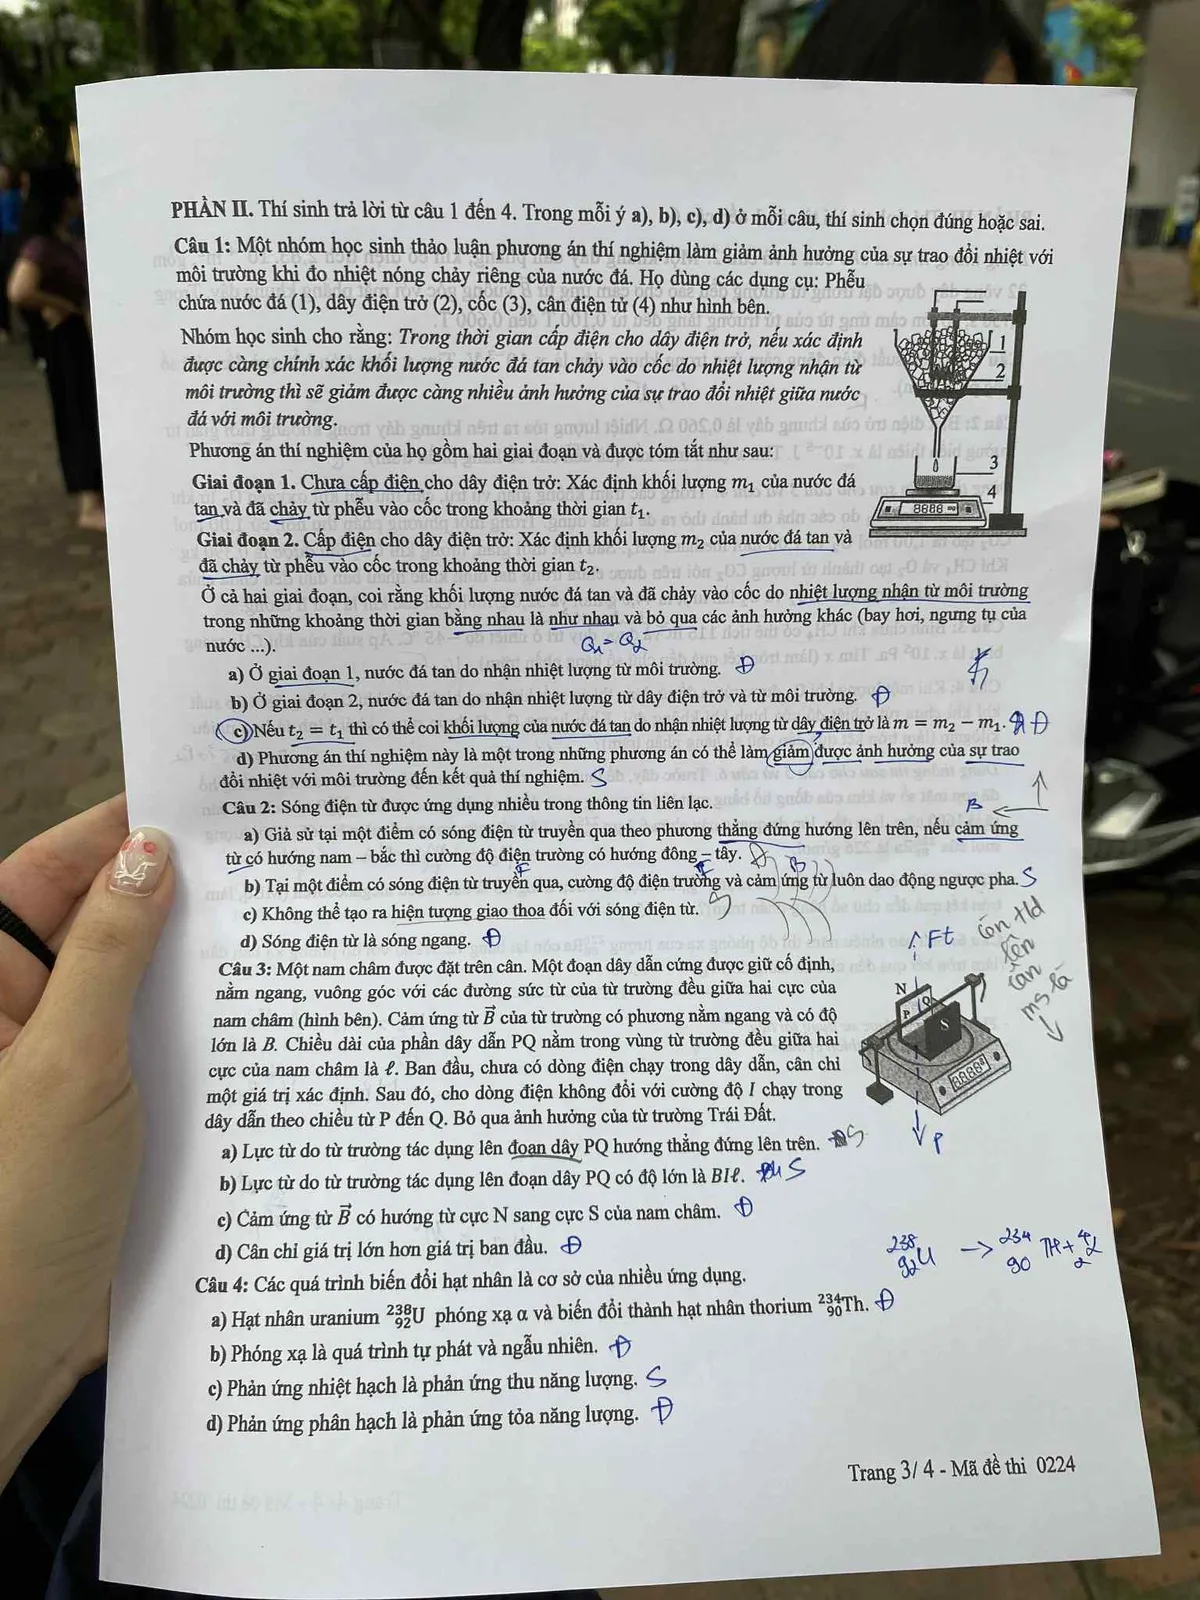 PHẦN II. Thí sinh trả lời từ câu 1 đến 4. Trong mỗi ý a), b), c), d) ở mỗi câu, thí sinh chọn đúng hoặc sai.
Câu 1: Một nhóm học sinh thảo luận phương án thí nghiệm làm giảm ảnh hưởng của sự trao đổi nhiệt với
môi trường khi đo nhiệt nóng chảy riêng của nước đá. Họ dùng các dụng cụ: Phễu
chứa nước đá (1), dây điện trở (2), cốc (3), cân điện tử (4) như hình bên.
Nhóm học sinh cho rằng: Trong thời gian cấp điện cho dây điện trở, nếu xác định
được càng chính xác khối lượng nước đá tan chảy vào cốc do nhiệt lượng nhận từ
môi trường thì sẽ giảm được càng nhiều ảnh hưởng của sự trao đổi nhiệt giữa nước
đá với môi trường.
1
2
3
4
8888
Phương án thí nghiệm của họ gồm hai giai đoạn và được tóm tắt như sau:
Giai đoạn 1. Chưa cấp điện cho dây điện trở: Xác định khối lượng m₁ của nước đá
tan và đã chảy từ phễu vào cốc trong khoảng thời gian t₁.
Giai đoạn 2. Cấp điện cho dây điện trở: Xác định khối lượng m₂ của nước đá tan và
đã chảy từ phễu vào cốc trong khoảng thời gian t₂.
Ở cả hai giai đoạn, coi rằng khối lượng nước đá tan và đã chảy vào cốc do nhiệt lượng nhận từ môi trường
trong những khoảng thời gian bằng nhau là như nhau và bỏ qua các ảnh hưởng khác (bay hơi, ngưng tụ của
nước ...). Q₁ = Q₂
a) Ở giai đoạn 1, nước đá tan do nhận nhiệt lượng từ môi trường. Đ
b) Ở giai đoạn 2, nước đá tan do nhận nhiệt lượng từ dây điện trở và từ môi trường. Đ
c) Nếu t₂ = t₁ thì có thể coi khối lượng của nước đá tan do nhận nhiệt lượng từ dây điện trở là m = m₂ − m₁. Đ
d) Phương án thí nghiệm này là một trong những phương án có thể làm giảm được ảnh hưởng của sự trao
đổi nhiệt với môi trường đến kết quả thí nghiệm. S
Câu 2: Sóng điện từ được ứng dụng nhiều trong thông tin liên lạc.
B
a) Giả sử tại một điểm có sóng điện từ truyền qua theo phương thẳng đứng hướng lên trên, nếu cảm ứng
từ có hướng nam – bắc thì cường độ điện trường có hướng đông – tây. Đ
B
b) Tại một điểm có sóng điện từ truyền qua, cường độ điện trường và cảm ứng từ luôn dao động ngược pha. S
c) Không thể tạo ra hiện tượng giao thoa đối với sóng điện từ. S
d) Sóng điện từ là sóng ngang. Đ
Câu 3: Một nam châm được đặt trên cân. Một đoạn dây dẫn cứng được giữ cố định,
nằm ngang, vuông góc với các đường sức từ của từ trường đều giữa hai cực của
nam châm (hình bên). Cảm ứng từ B⃗ của từ trường có phương nằm ngang và có độ
lớn là B. Chiều dài của phần dây dẫn PQ nằm trong vùng từ trường đều giữa hai
cực của nam châm là ℓ. Ban đầu, chưa có dòng điện chạy trong dây dẫn, cân chỉ
một giá trị xác định. Sau đó, cho dòng điện không đổi với cường độ I chạy trong
dây dẫn theo chiều từ P đến Q. Bỏ qua ảnh hưởng của từ trường Trái Đất.
Ft
N
P
Q
S
8888
P
a) Lực từ do từ trường tác dụng lên đoạn dây PQ hướng thẳng đứng lên trên. S
b) Lực từ do từ trường tác dụng lên đoạn dây PQ có độ lớn là BIℓ. S
c) Cảm ứng từ B⃗ có hướng từ cực N sang cực S của nam châm. Đ
d) Cân chỉ giá trị lớn hơn giá trị ban đầu. Đ
²³⁸₉₂U → ²³⁴₉₀Th + ⁴₂α
Câu 4: Các quá trình biến đổi hạt nhân là cơ sở của nhiều ứng dụng.
a) Hạt nhân uranium ²³⁸₉₂U phóng xạ α và biến đổi thành hạt nhân thorium ²³⁴₉₀Th. Đ
b) Phóng xạ là quá trình tự phát và ngẫu nhiên. Đ
c) Phản ứng nhiệt hạch là phản ứng thu năng lượng. S
d) Phản ứng phân hạch là phản ứng tỏa năng lượng. Đ
Trang 3/ 4 - Mã đề thi 0224